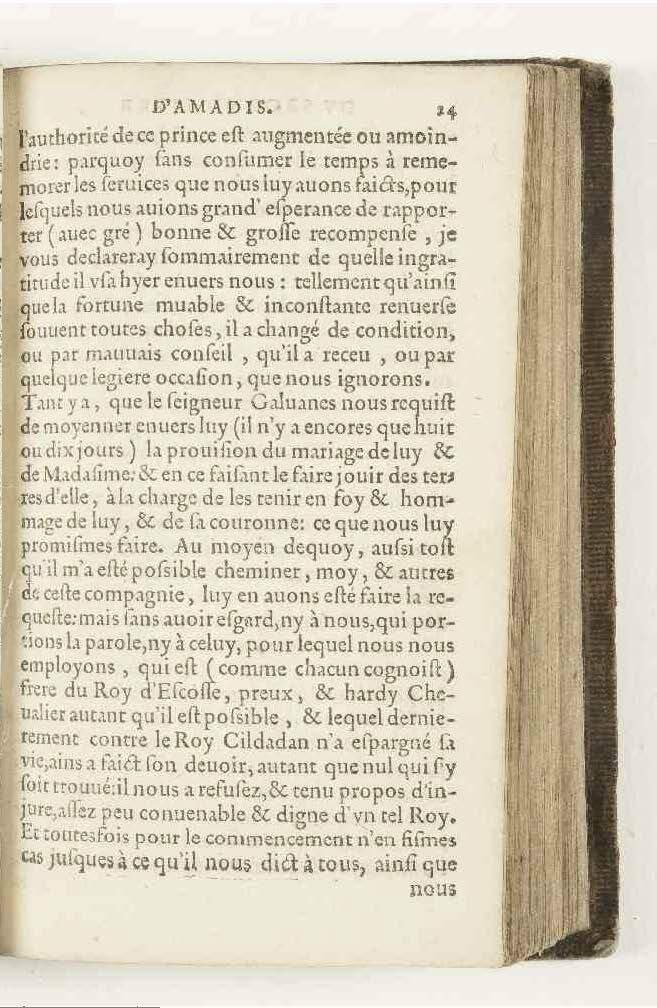 D'AMADIS. 24
l'authorité de ce prince eſt augmentée ou amoin-
drie: parquoy ſans conſumer le temps à reme-
morer les ſeruices que nous luy auons faicts, pour
leſquels nous auions grand' eſperance de rappor-
ter (auec gré) bonne & groſſe recompenſe, je
vous declareray ſommairement de quelle ingra-
titude il vſa hyer enuers nous: tellement qu'ainſi
que la fortune muable & inconſtante renuerſe
ſouuent toutes choſes, il a changé de condition,
ou par mauuais conſeil, qu'il a receu, ou par
quelque legiere occaſion, que nous ignorons.
Tant y a, que le ſeigneur Galuanes nous requiſt
de moyenner enuers luy (il n'y a encores que huit
ou dix jours) la prouiſion du mariage de luy &
de Madaſime: & en ce faiſant le faire jouir des ter-
res d'elle, à la charge de les tenir en foy & hom-
mage de luy, & de ſa couronne: ce que nous luy
promiſmes faire. Au moyen dequoy, auſsi toſt
qu'il m'a eſté poſsible cheminer, moy, & autres
de ceſte compagnie, luy en auons eſté faire la re-
queſte: mais ſans auoir eſgard, ny à nous, qui por-
tions la parole, ny à celuy, pour lequel nous nous
employons, qui eſt (comme chacun cognoiſt)
frere du Roy d'Eſcoſſe, preux, & hardy Che-
ualier autant qu'il eſt poſsible, & lequel dernie-
rement contre le Roy Cildadan n'a eſpargné ſa
vie, ains a faict ſon deuoir, autant que nul qui ſ'y
ſoit trouué: il nous a refuſez, & tenu propos d'in-
jure, aſſez peu conuenable & digne d'vn tel Roy.
Et toutesfois pour le commencement n'en fiſmes
cas juſques à ce qu'il nous dict à tous, ainſi que
nous